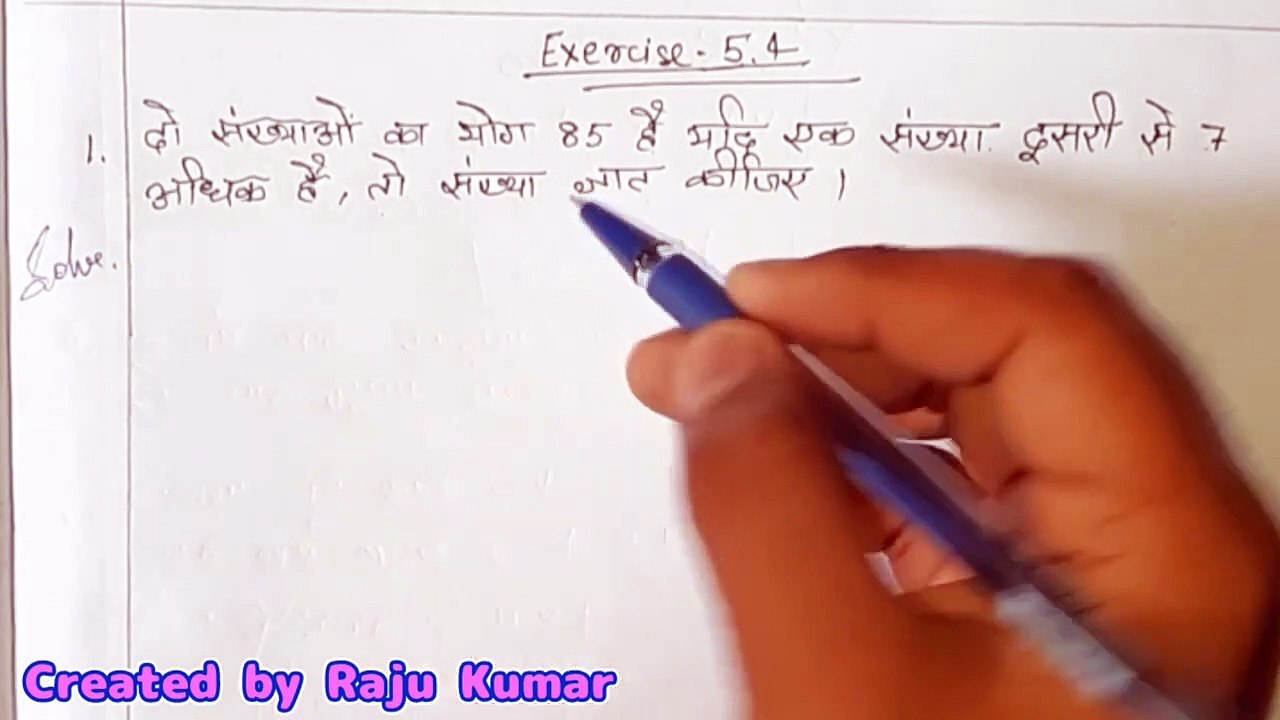 Exercise - 5.4
1. दो संख्याओं का योग 85 है यदि एक संख्या दूसरी से 7
अधिक है, तो संख्या ज्ञात कीजिए ।
Solve.
Created by Raju Kumar